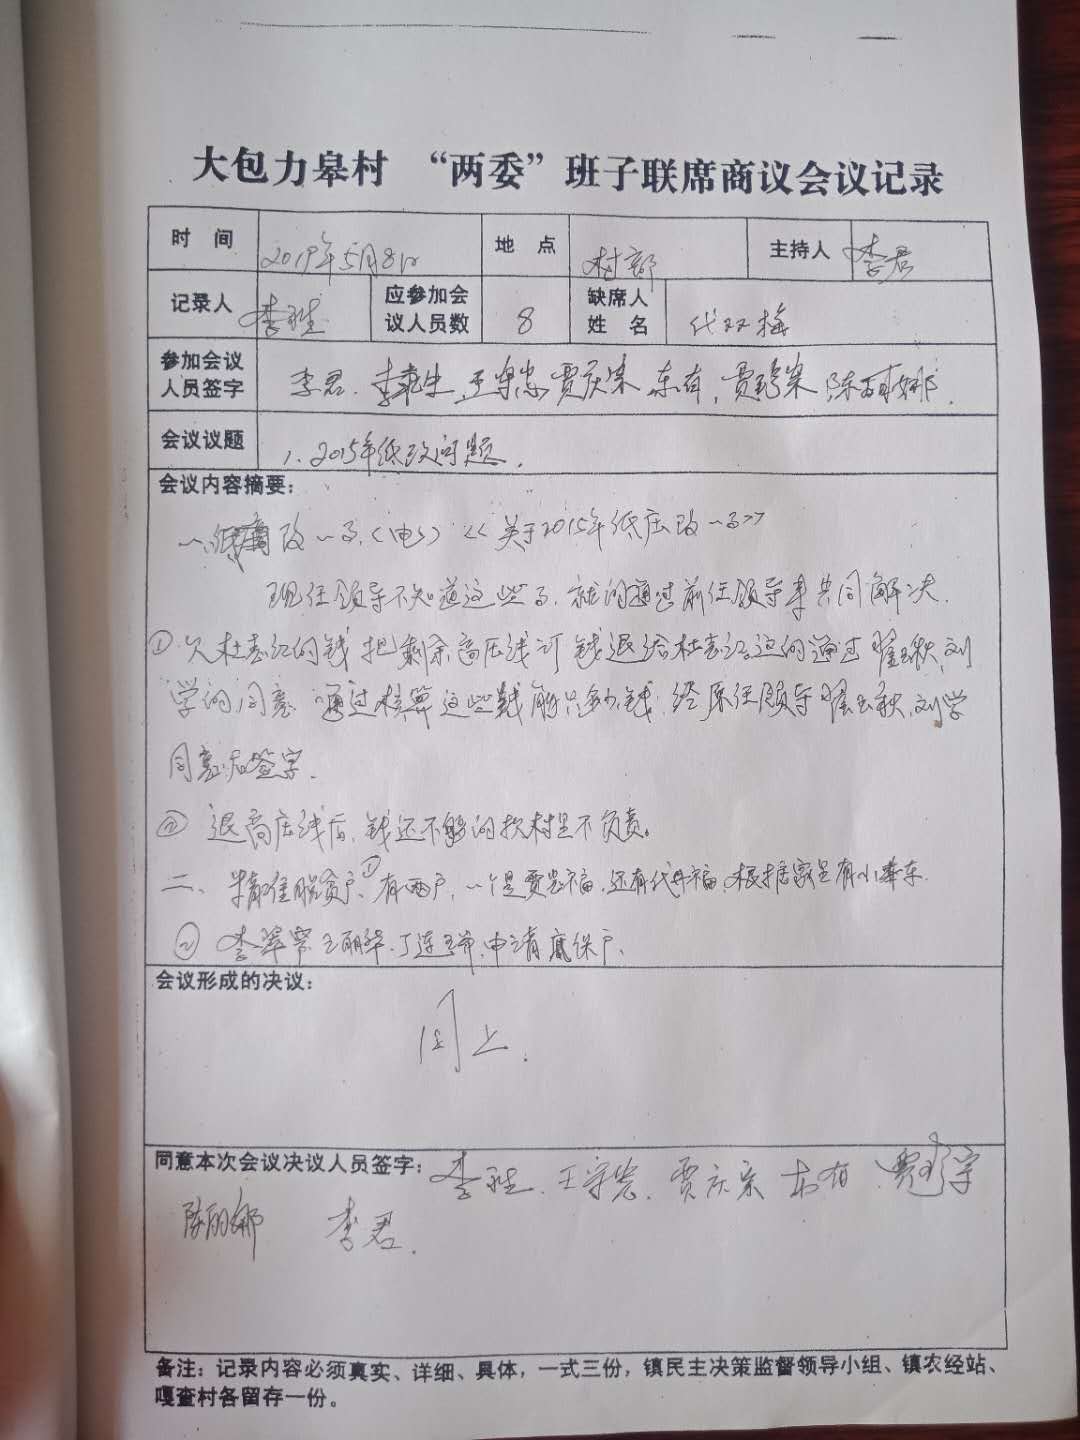 大包力皋村 “两委”班子联席商议会议记录
时 间 2019年5月8日 地 点 村部 主持人 李君
记录人 李 应参加会议人员数 8 缺席人姓名 代双梅
参加会议人员签字 李君. 贾庆宗 东有, 陈
会议议题 1. 2015年低改问题.
会议内容摘要:
一. 改一事.(电) <<关于2015年低压改一事>>
现任领导不知道这些事. 就的通过前任领导来共同解决.
① 欠杜 红的钱 把剩余高压线 钱退给杜 红 的通过 秋,刘
学的同意 通过核算这些 钱 经原任领导 秋,刘学
同意后签字.
② 退高压线后, 钱还不够的款村里不负责。
二、精准脱贫户、①有两户, 一个是贾 福, 还有代 福, 根据家里有小轿车.
② 李 王丽华、丁连 申请底保户、
会议形成的决议:
同上.
同意本次会议决议人员签字: 李 . 王守 . 贾庆宗 东有
陈丽娜 李君.
备注: 记录内容必须真实、详细、具体, 一式三份, 镇民主决策监督领导小组、镇农经站、
嘎查村各留存一份。